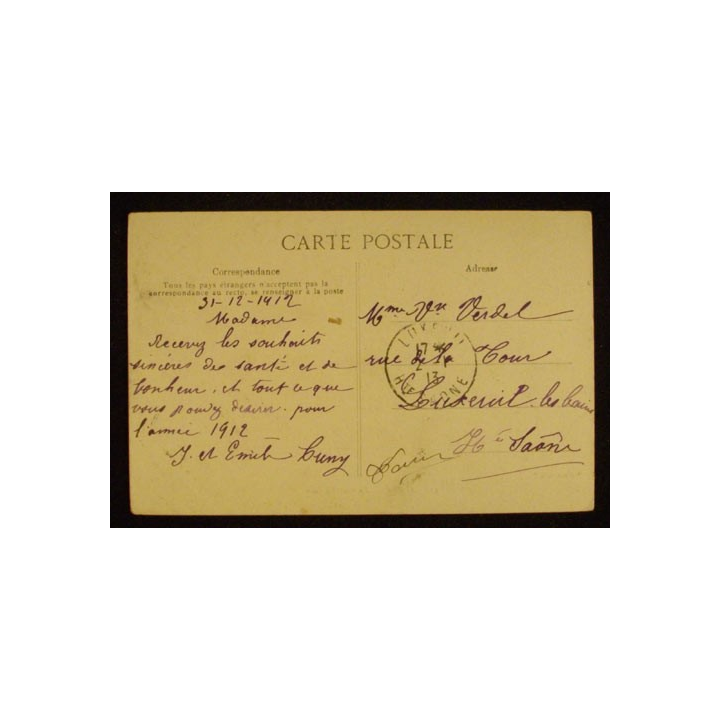 CARTE POSTALE
Correspondance
Tous les pays étrangers n'acceptent pas la
correspondance au recto, se renseigner à la poste
31-12-1912
Madame
Recevez les souhaits
sincères des santé et de
bonheur. et tout ce que
vous pouvez désirer. pour
l'année 1912
J. et Emile Cuny
Adresse
Mme Vve Verdel
rue de la Tour
Luxeuil les bains
Hte Saône
LUXEUIL
17
2
13
Hte SAONE